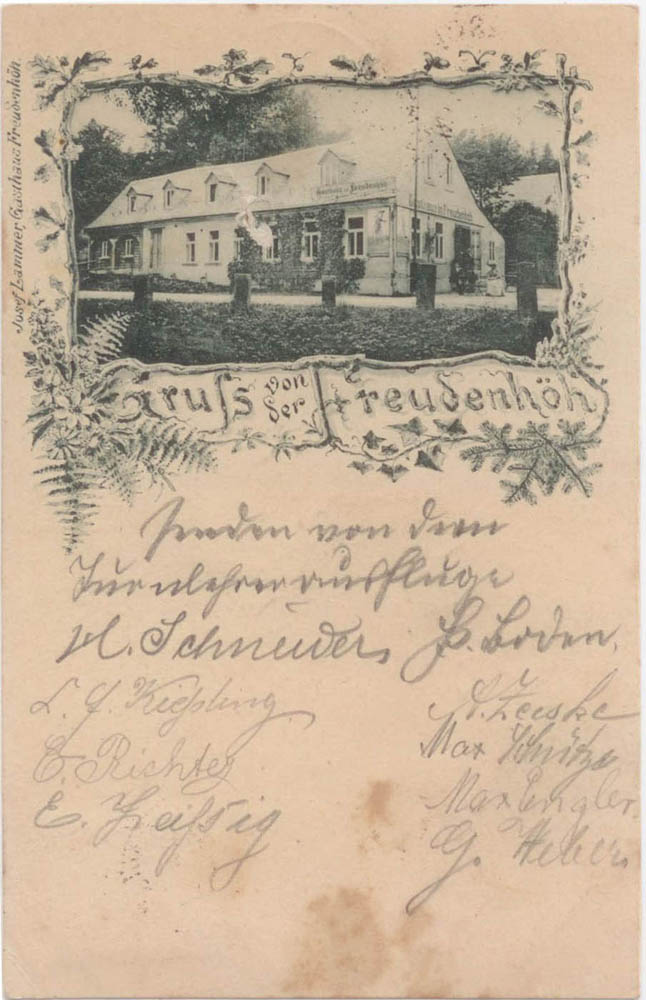 Josef Lammer, Gasthaus Freudenhöh.
Gasthaus zur Freudenhöh
Gruss von der Freudenhöh
Senden von dem
Turnlehrerausfluge
H. Schneider, B. Boden.
L. F. Kießling.
A. Zeuske
E. Richter
Max Schütze
Max Engler.
E. Zeißig
G. Weber.